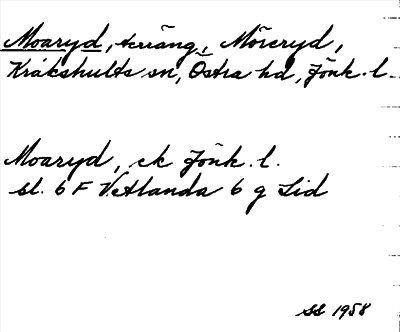 Moaryd, terräng, Möreryd,
Kråkshults sn, Östra hd, Jönk. l.
Moaryd, ek Jönk. l.
bl. 6 F Vetlanda 6 g Lid
SS 1958